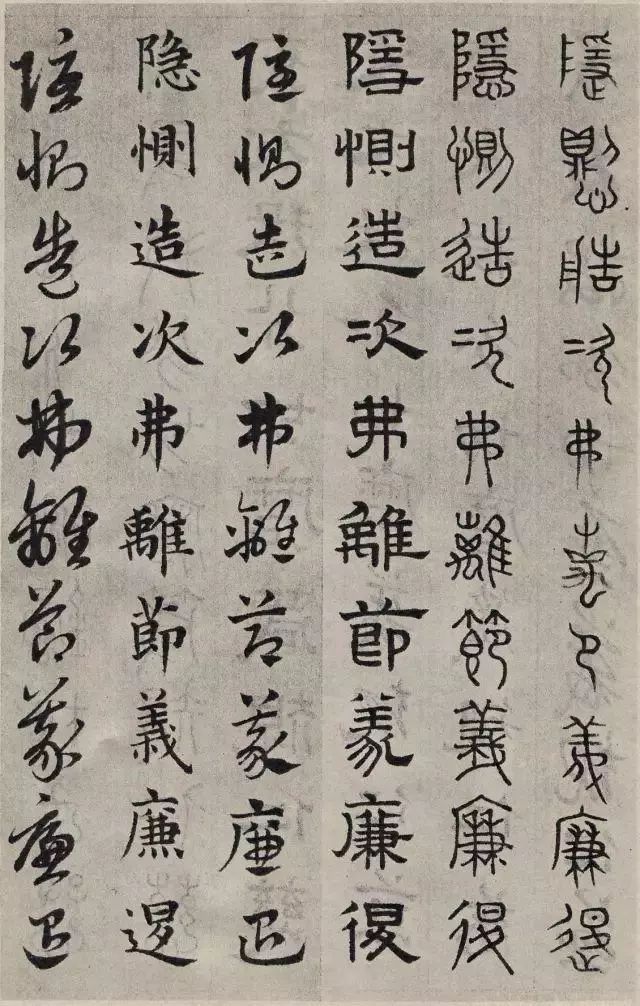 隱惻造次弗離節義廉退
隱惻造次弗離節義廉退
隱惻造次弗離節義廉退
隱惻造次弗離節義廉退
隐惻造次弗離節義廉退
隱惻造次弗離節義廉退